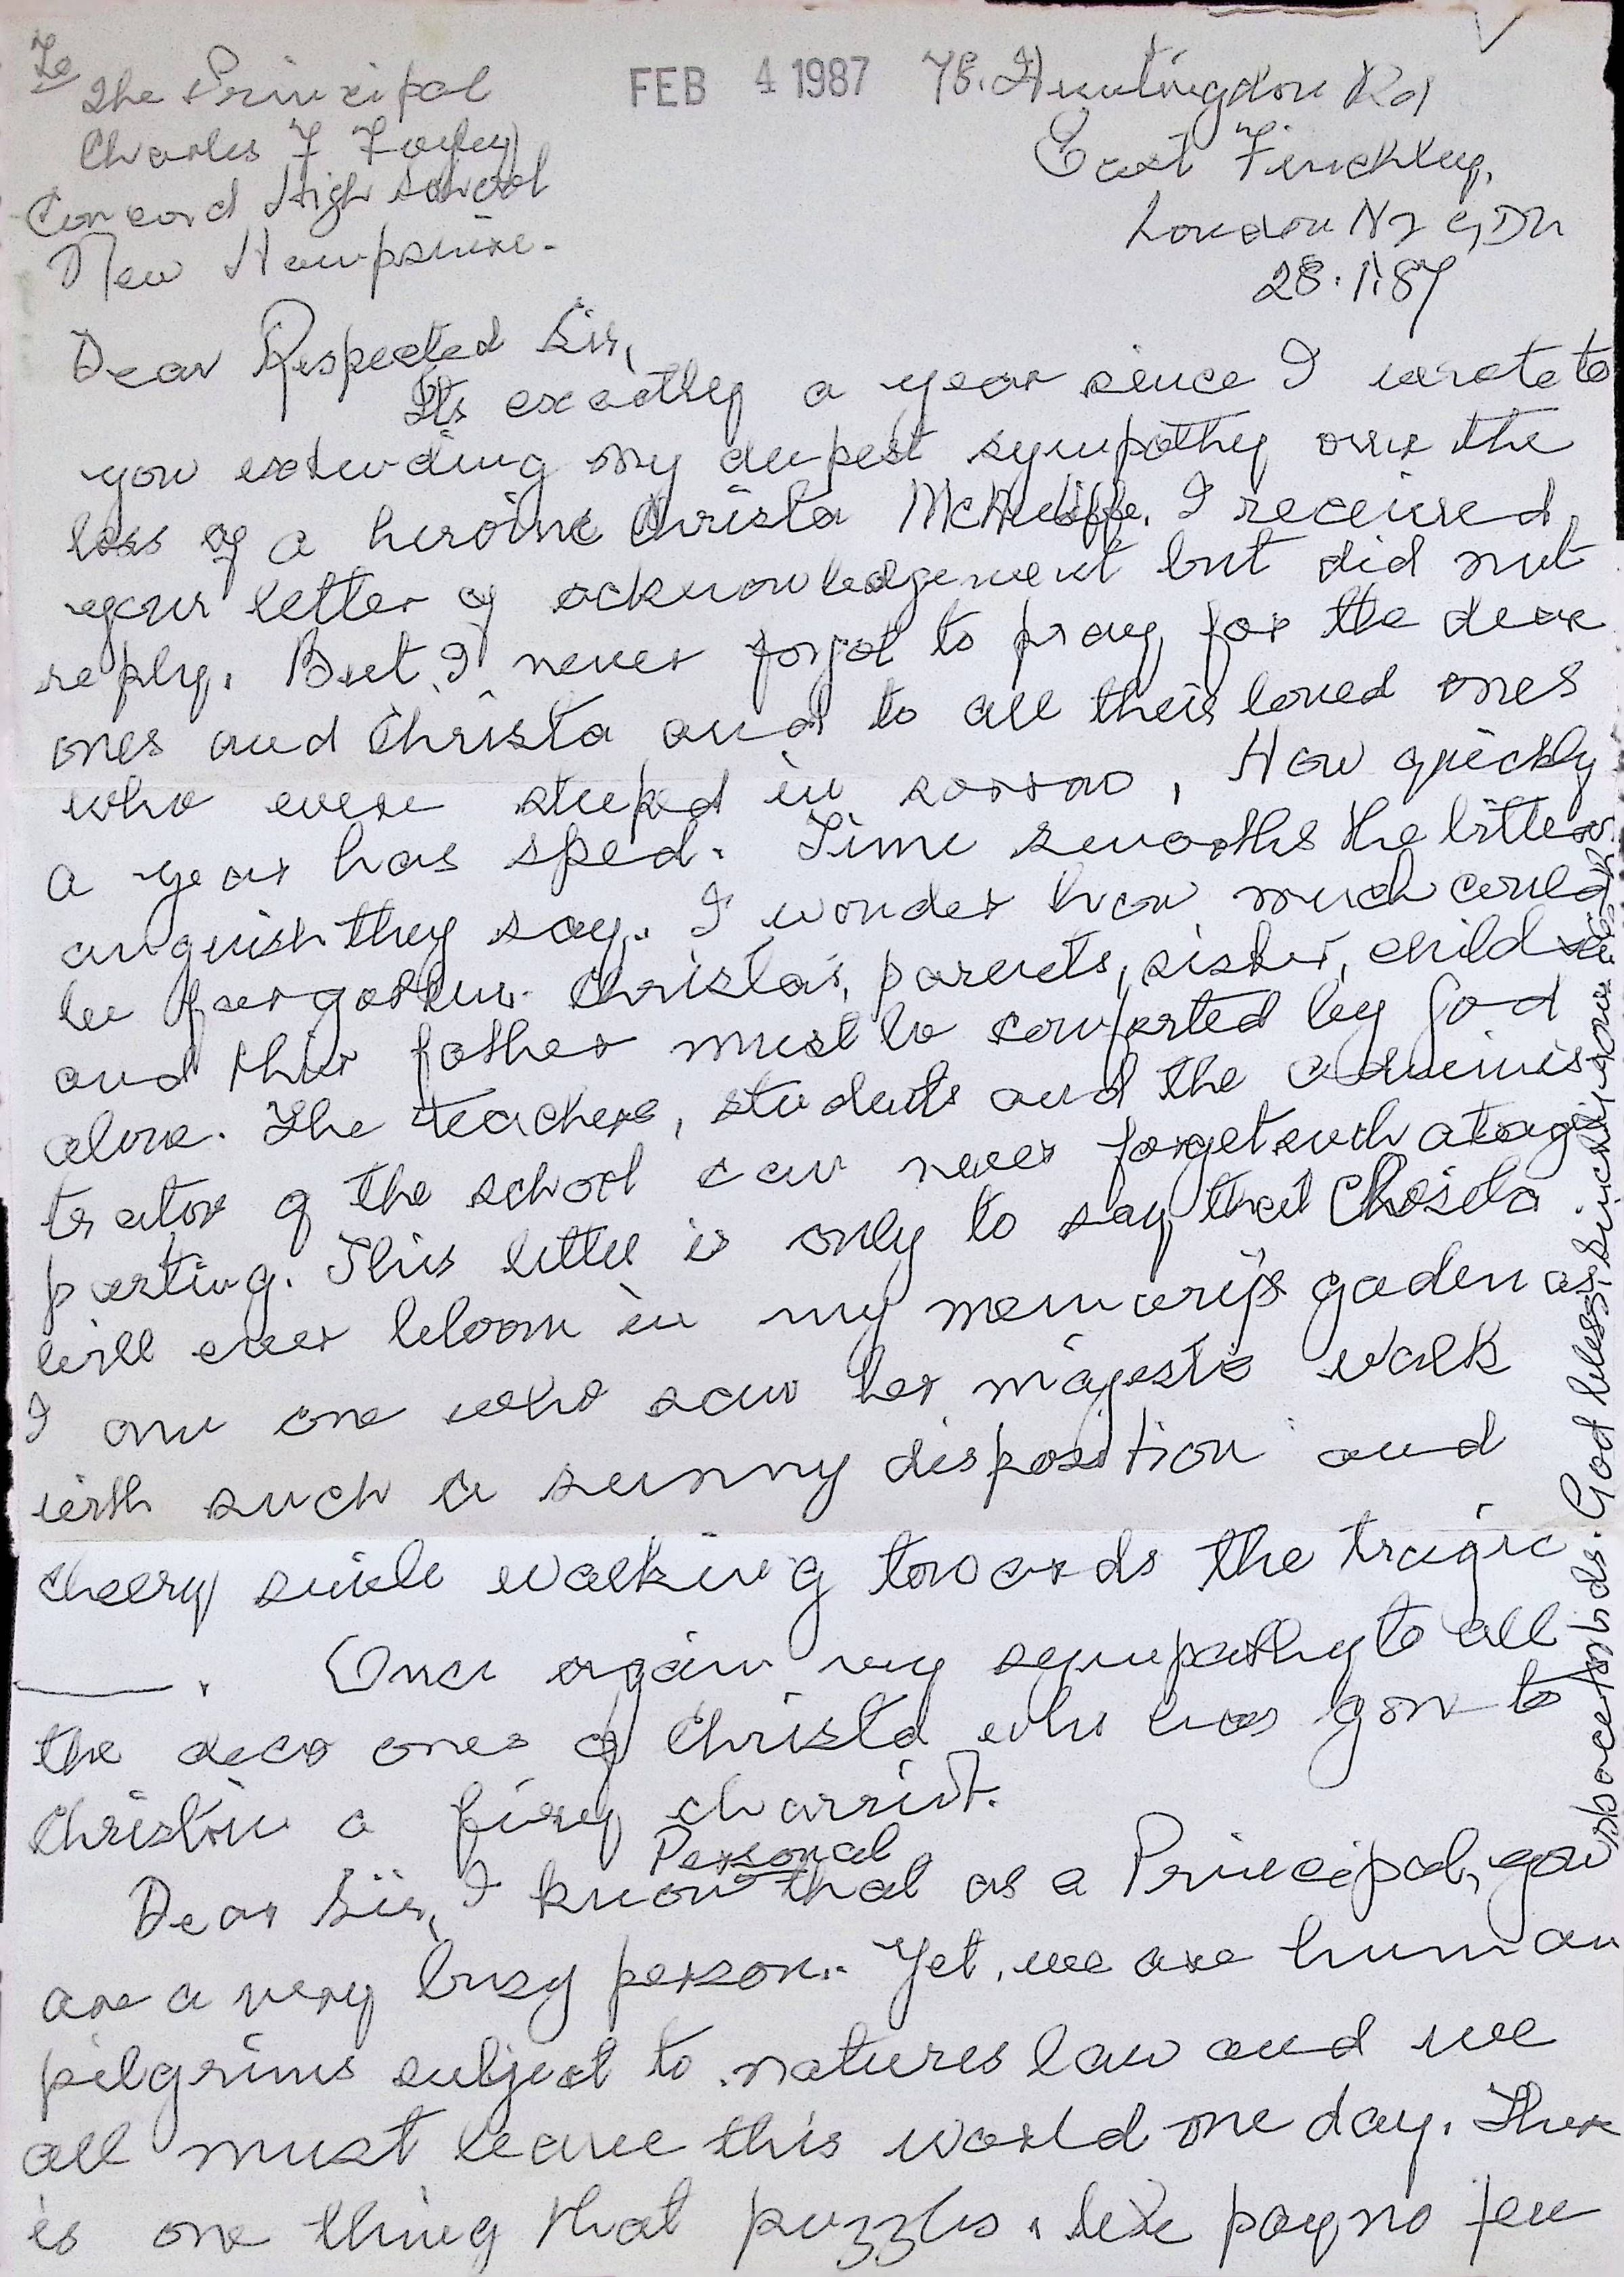 To
The Principal
Charles F Foley
Concord High School
New Hampshire.
FEB 4 1987
78. Huntingdon Rd
East Finchley,
London N2 9DU
28.1.87
Dear Respected Sir,
Its exactly a year since I wrote to
you extending my deepest sympathy over the
loss of a heroine Christa McAuliffe. I received
your letter of acknowledgement but did not
reply. But I never forgot to pray for the dear
ones and Christa and to all their loved ones
who were steeped in sorrow. How quickly
a year has sped. Time smooths the bitter
anguish they say. I wonder how much could
be forgotten. Christa's parents, sister, children
and their father must be comforted by God
alone. The teachers, students and the adminis
trator of the school can never forget such a tragic
parting. This letter is only to say that Christa
will ever bloom in my memory's gaden as
I am one who saw her majestic walk
with such a sunny disposition and
cheery smile walking towards the tragic
. Once again my sympathy to all
the dear ones of Christa who has gone to
Christ in a firey charriot.
Personal
Dear Sir, I know that as a Principal, you
are a very busy person. Yet, we are human
pilgrims subject to natures law and we
all must leave this world one day. There
is one thing that puzzles. We pay no fee
space to birds. God bless. Sincerely your